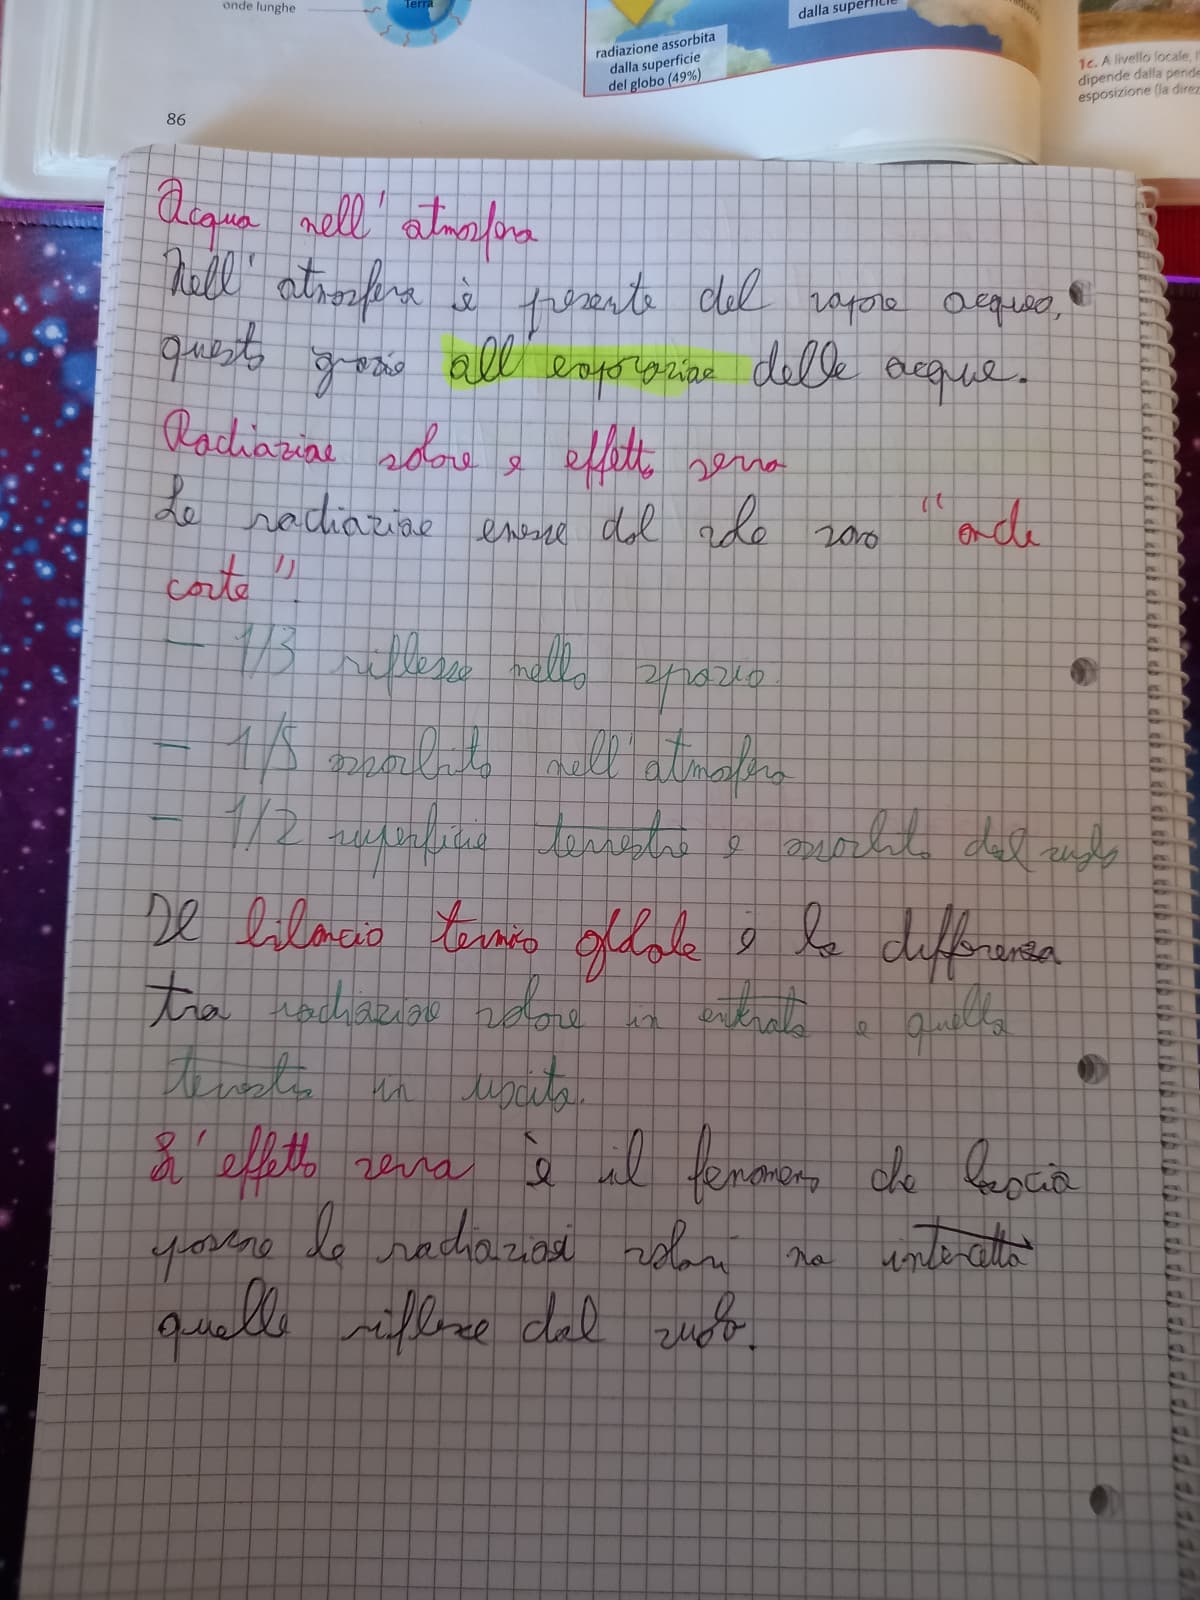 onde lunghe
Terra
radiazione assorbita
dalla superficie
del globo (49%)
dalla superficie
1c. A livello locale,
dipende dalla
esposizione (la
86
Acqua nell'atmosfera
Nell'atmosfera è presente del vapore acqueo,
questo grazie all'evaporazione delle acque.
Radiazione solare e effetto serra
Le radiazione emesse dal sole sono "onde
corte".
- 1/3 riflesse nello spazio
- 1/5 assorbito nell'atmosfera
- 1/2 superficie terrestre e assorbito dal suolo
Il bilancio termico globale è la differenza
tra radiazione solare in entrata e quella
terrestre in uscita.
L'effetto serra è il fenomeno che lascia
passare le radiazioni solari ma intercetta
quelle riflesse dal suolo.